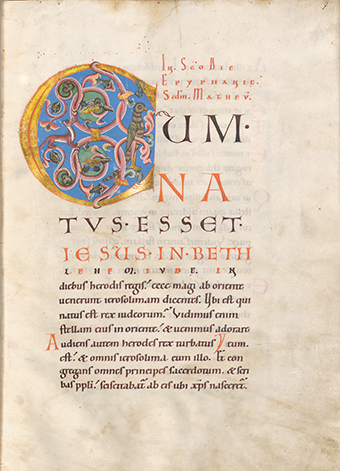 In Sc̄o Die
Epyphanie.
Scdm. Matheū.
CUM·
NA
TUS·ESSET·
IESUS·IN·BETH
LEHEM·IUDE·IN
diebus herodis regis. ecce magi ab oriente
uenerunt ierosolimam dicentes. Ubi est qui
natus est rex iudeorum. Vidimus enim
stellam eius in oriente. & uenimus adorare
Audiens autem herodes rex turbatus eum.
est. & omnis ierosolima cum illo. Et con
gregans omnes principes sacerdotum. & scri
bas ppli. sciscitabat ab eis ubi xp̄s nasceret.